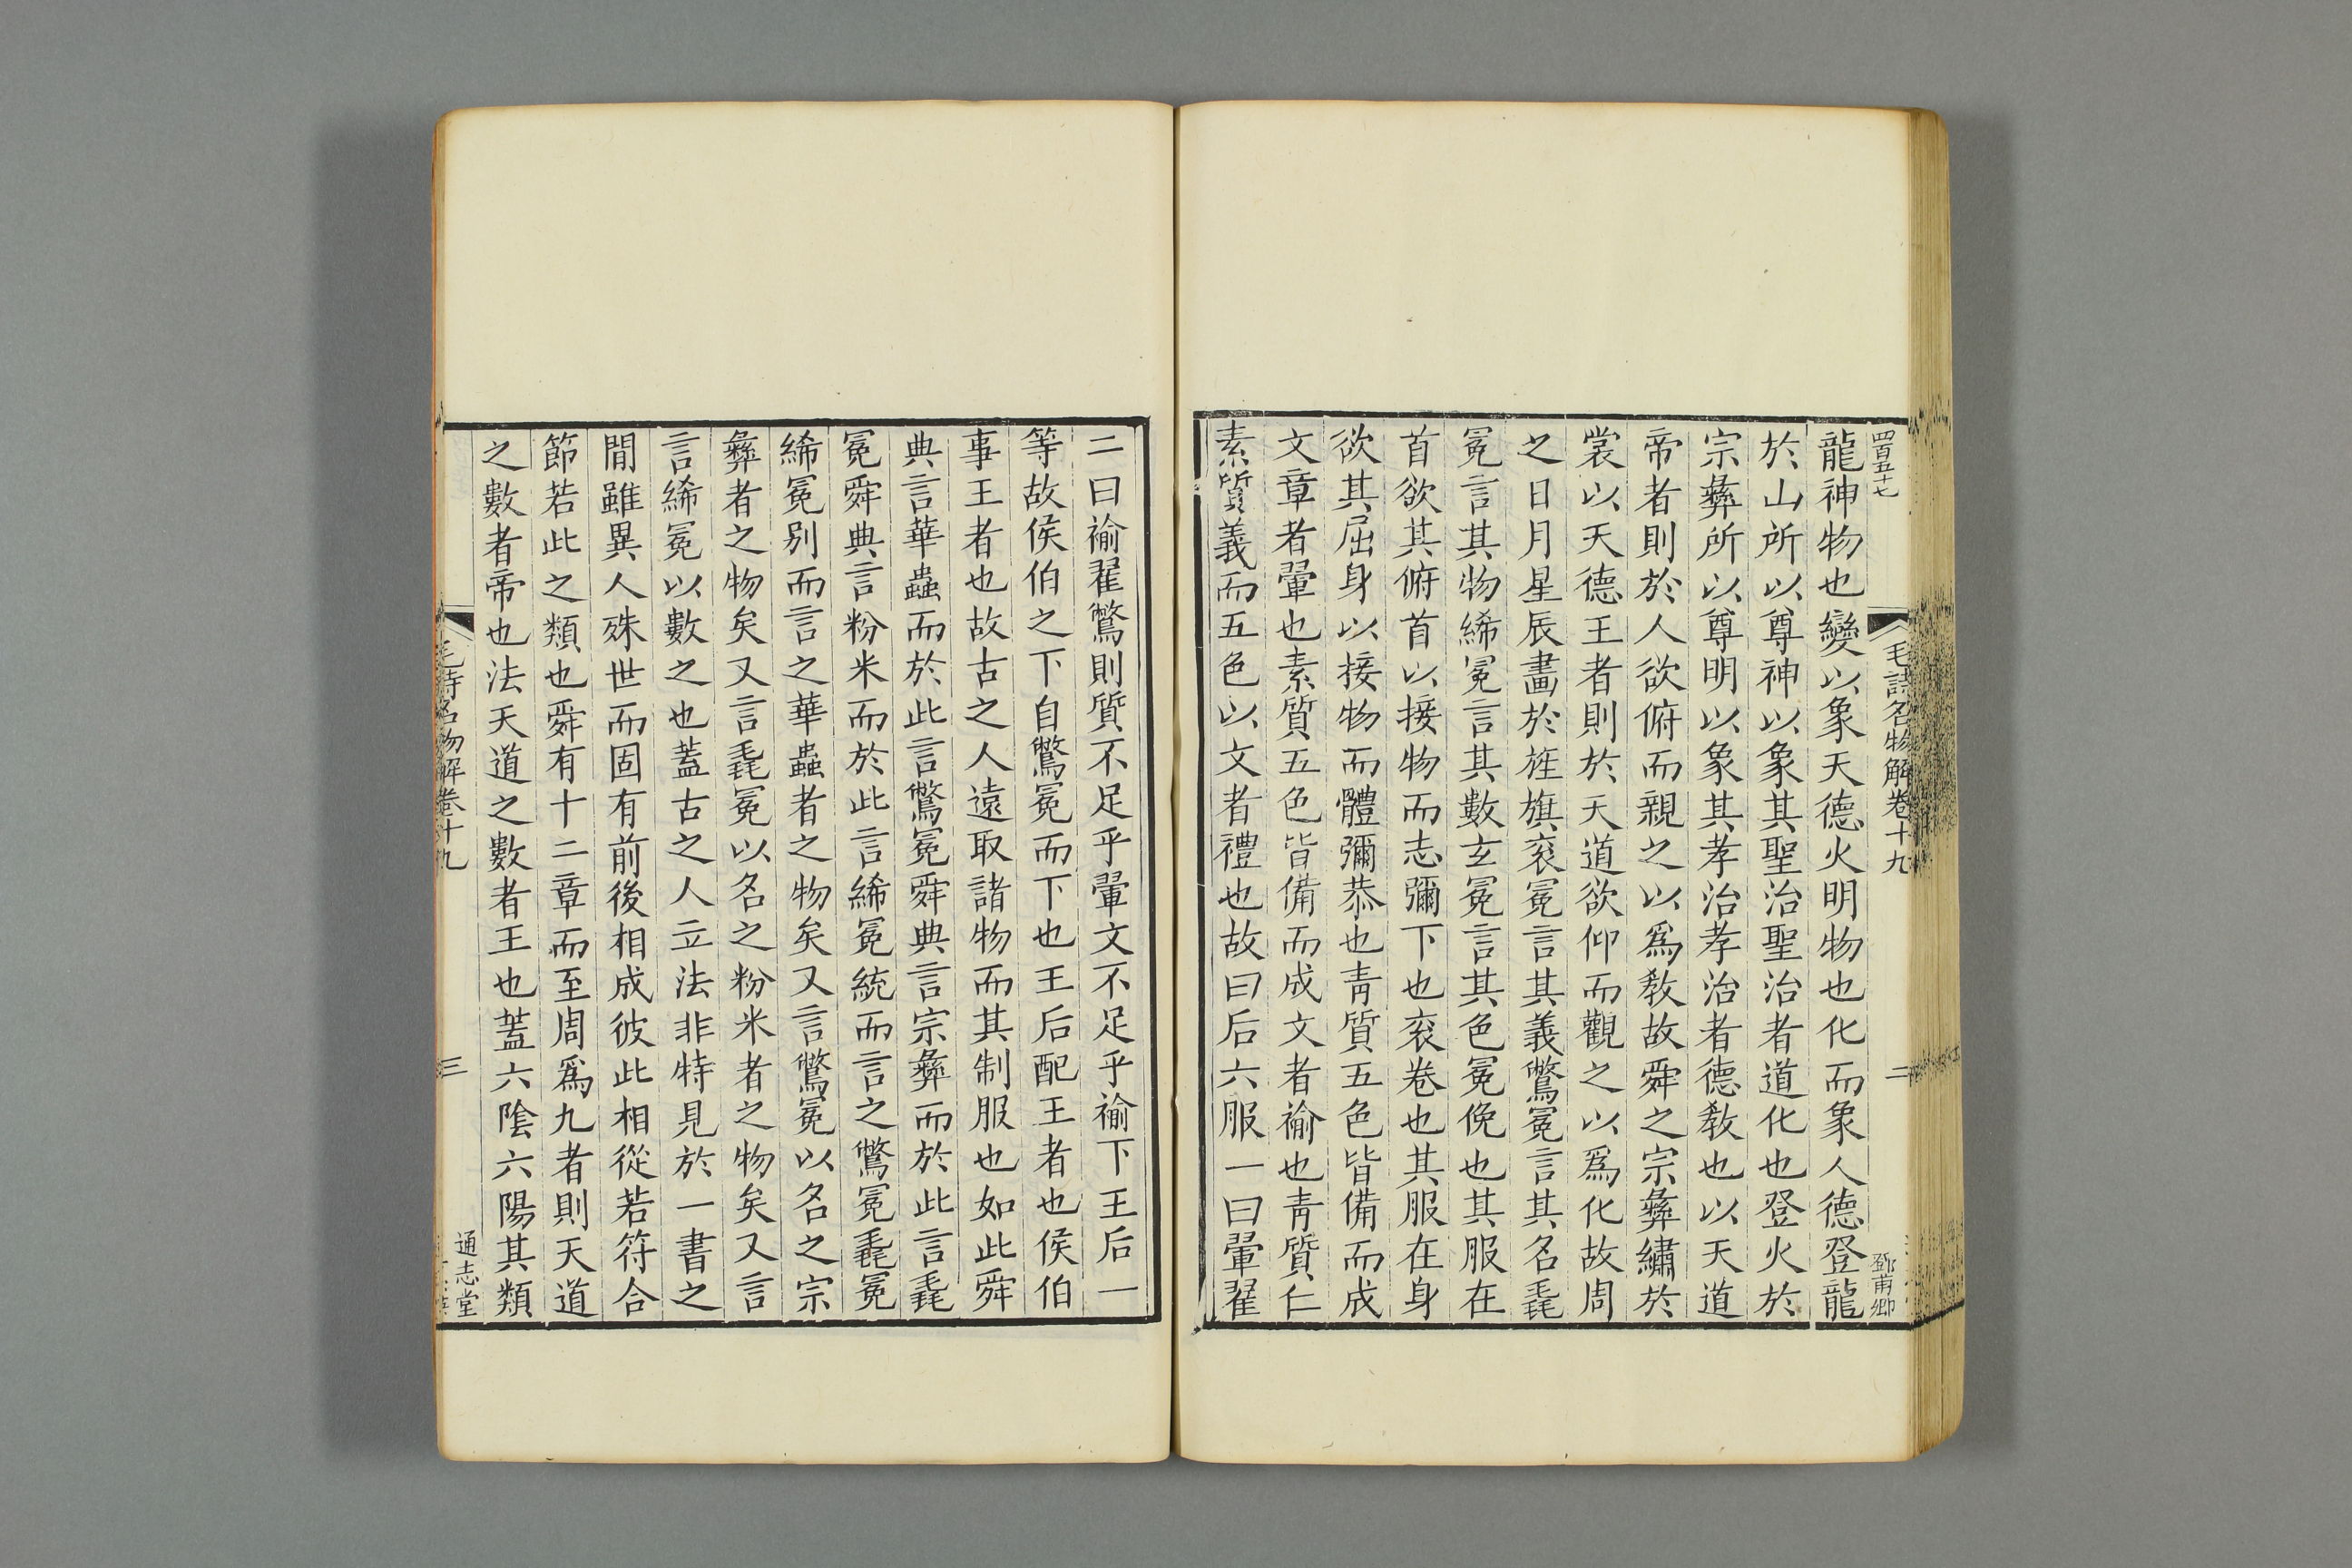 四百五十七
毛詩名物解卷十九
二
鄧甫卿
龍神物也變以象天德火明物也化而象人德登龍
於山所以尊神以象其聖治聖治者道化也登火於
宗彝所以尊明以象其孝治孝治者德教也以天道
帝者則於人欲俯而親之以爲教故舜之宗彝繡於
裳以天德王者則於天道欲仰而觀之以爲化故周
之日月星辰畫於旌旗袞冕言其義鷩冕言其名毳
冕言其物絺冕言其數玄冕言其色冕俛也其服在
首欲其俯首以接物而志彌下也袞卷也其服在身
欲其屈身以接物而體彌恭也靑質五色皆備而成
文章者翬也素質五色皆備而成文者褕也靑質仁
素質義而五色以文者禮也故曰后六服一曰翬翟
二曰褕翟鷩則質不足乎翬文不足乎褕下王后一
等故侯伯之下自鷩冕而下也王后配王者也侯伯
事王者也故古之人遠取諸物而其制服也如此舜
典言華蟲而於此言鷩冕舜典言宗彝而於此言毳
冕舜典言粉米而於此言絺冕統而言之鷩冕毳冕
絺冕别而言之華蟲者之物矣又言鷩冕以名之宗
彝者之物矣又言毳冕以名之粉米者之物矣又言
言絺冕以數之也蓋古之人立法非特見於一書之
間雖異人殊世而固有前後相成彼此相從若符合
節若此之類也舜有十二章而至周爲九者則天道
之數者帝也法天道之數者王也蓋六陰六陽其類
毛詩名物解卷十九
三
通志堂